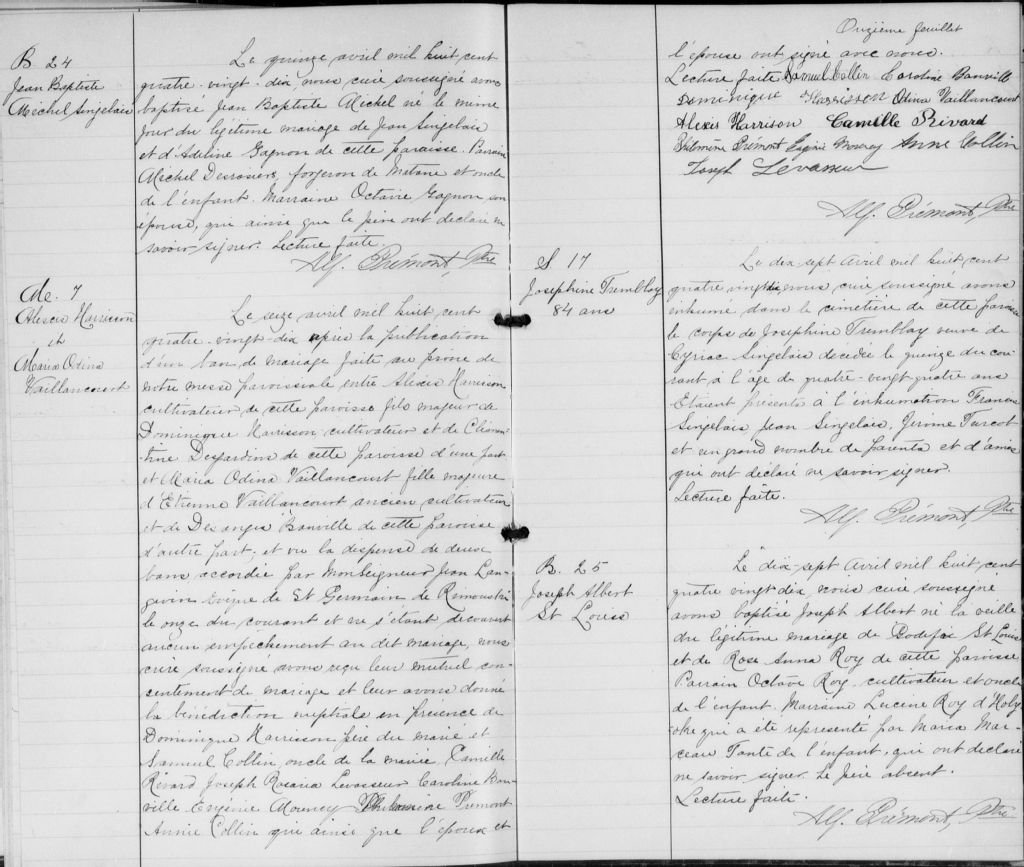 B 24
Jean Baptiste
Michel Singelais
Le quinze avril mil huit cent
quatre-vingt-dix nous curé soussigné avons
baptisé Jean Baptiste Michel né le même
jour du légitime mariage de Jean Singelais
et d'Adeline Gagnon de cette paroisse. Parrain
Michel Desrosiers, forgeron de Matane et oncle
de l'enfant. Marraine Octavie Gagnon son
épouse, qui ainsi que le père ont déclaré ne
savoir signer. Lecture faite.
Alf. Prémont, Ptre
M. 7
Alexis Harrisson
et
Maria Odina
Vaillancourt
Le seize avril mil huit cent
quatre-vingt-dix après la publication
d'un ban de mariage faite au prône de
notre messe paroissiale entre Alexis Harrisson
cultivateur de cette paroisse fils majeur de
Dominique Harrisson cultivateur et de Clémen-
tine Desjardins de cette paroisse d'une part
et Maria Odina Vaillancourt fille majeure
d'Etienne Vaillancourt ancien cultivateur
et de Desanges Banville de cette paroisse
d'autre part; et vu la dispense de deux
bans accordée par Monseigneur Jean Lan-
gevin Evêque de St Germain de Rimouski
le onze du courant et ne s'étant découvert
aucun empêchement au dit mariage, nous
curé soussigné avons reçu leur mutuel con-
sentement de mariage et leur avons donné
la bénédiction nuptiale en présence de
Dominique Harrisson père du marié et
Samuel Collin oncle de la mariée, Camille
Rivard Joseph Rosaria Levasseur Caroline Ban-
ville Eugénie Mourney Philomène Prémont
Annie Collin qui ainsi que l'époux et
Onzième feuillet
l'épouse ont signé avec nous.
Lecture faite Samuel Collin Caroline Banville
Dominique Harrisson Odina Vaillancourt
Alexis Harrison Camille Rivard
Philomène Prémont Eugénie Anne Collin
Joseph Levasseur
Alf. Prémont, Ptre
S 17
Josephine Tremblay
84 ans
Le dix-sept avril mil huit cent
quatre vingt dix, nous curé soussigné avons
inhumé dans le cimetière de cette paroisse
le corps de Josephine Tremblay veuve de
Cyriac Singelais décédée le quinze du cou-
rant à l'âge de quatre-vingt-quatre ans
Etaient présents à l'inhumation Francis
Singelais, Jean Singelais, Jerome Turcot
et un grand nombre de parents et d'amis
qui ont déclaré ne savoir signer.
Lecture faite.
Alf. Prémont, Ptre
B. 25
Joseph Albert
St Louis
Le dix-sept avril mil huit cent
quatre vingt dix, nous curé soussigné
avons baptisé Joseph Albert né la veille
du légitime mariage de St Louis
et de Rose Anna Roy de cette paroisse
Parrain Octave Roy cultivateur et oncle
de l'enfant. Marraine Roy d'Holy-
oke qui a été représenté par Maria Mar-
ceau Tante de l'enfant, qui ont déclaré
ne savoir signer. Le père absent.
Lecture faite.
Alf. Prémont, Ptre